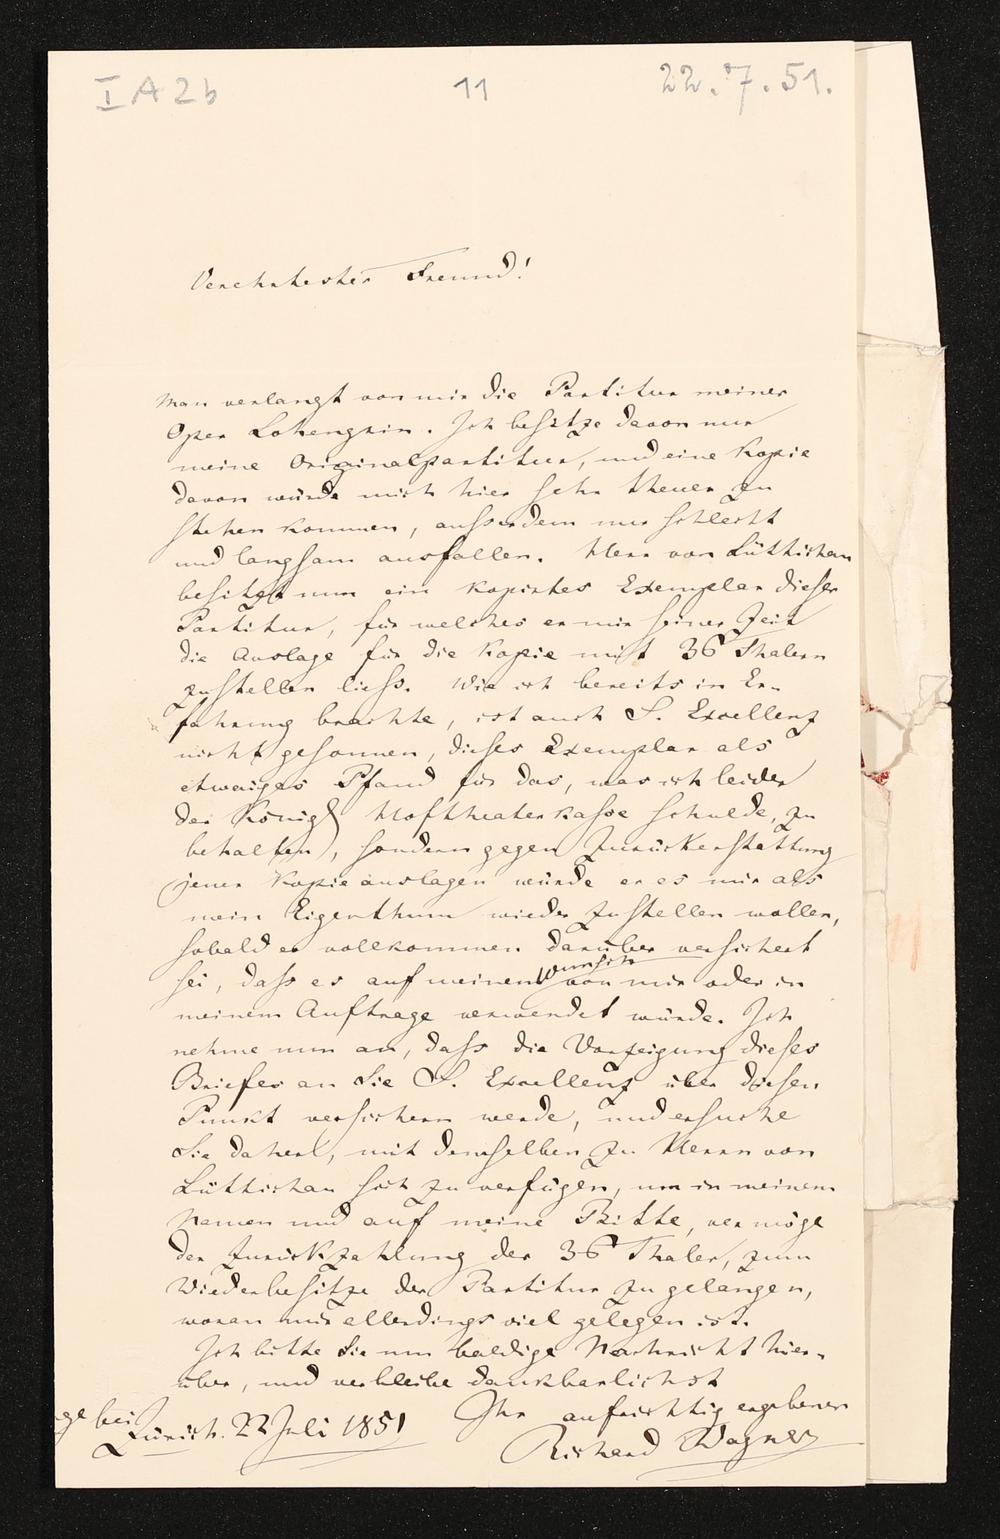 I A 2 b 11 22.7.51.
Verehrtester Freund!
Man verlangt von mir die Partitur meiner
Oper Lohengrin. Ich besitze davon nur
meine Originalpartitur, und eine Kopie
davon würde mich hier sehr theuer zu
stehen kommen, ausserdem nur schlecht
und langsam ausfallen. Herr von Lüttichau
besitzt nun ein kopirtes Exemplar dieser
Partitur, für welches er mir seiner Zeit
die Auslage für die Kopie mit 36 Thalern
zustellen liess. Wie ich bereits in Er-
fahrung brachte, ist auch S. Excellenz
nicht gesonnen, dieses Exemplar als
etwaiges Pfand für das, was ich leider
der Königl Hoftheaterkasse schulde, zu
behalten, sondern gegen Zurückerstattung
jener Kopieauslagen würde er es mir als
mein Eigenthum wieder zustellen wollen,
sobald er vollkommen darüber versichert
sei, dass es auf meinen Wunsch von mir oder in
meinem Auftrage verwendet würde. Ich
nehme nun an, dass die Vorzeigung dieses
Briefes an Sie S. Excellenz über diesen
Punkt versichern werde, und ersuche
Sie daher, mit demselben zu Herrn von
Lüttichau sich zu verfügen, um in meinem
Namen und auf meine Bitte, vermöge
der Zurückzahlung der 36 Thaler, zum
Wiederbesitze der Partitur zu gelangen,
woran mir allerdings viel gelegen ist.
Ich bitte Sie um baldige Nachricht hier-
über, und verbleibe dankbarlichst
Ihr aufrichtig ergebener
Zürich. 22 Juli 1851
Richard Wagner